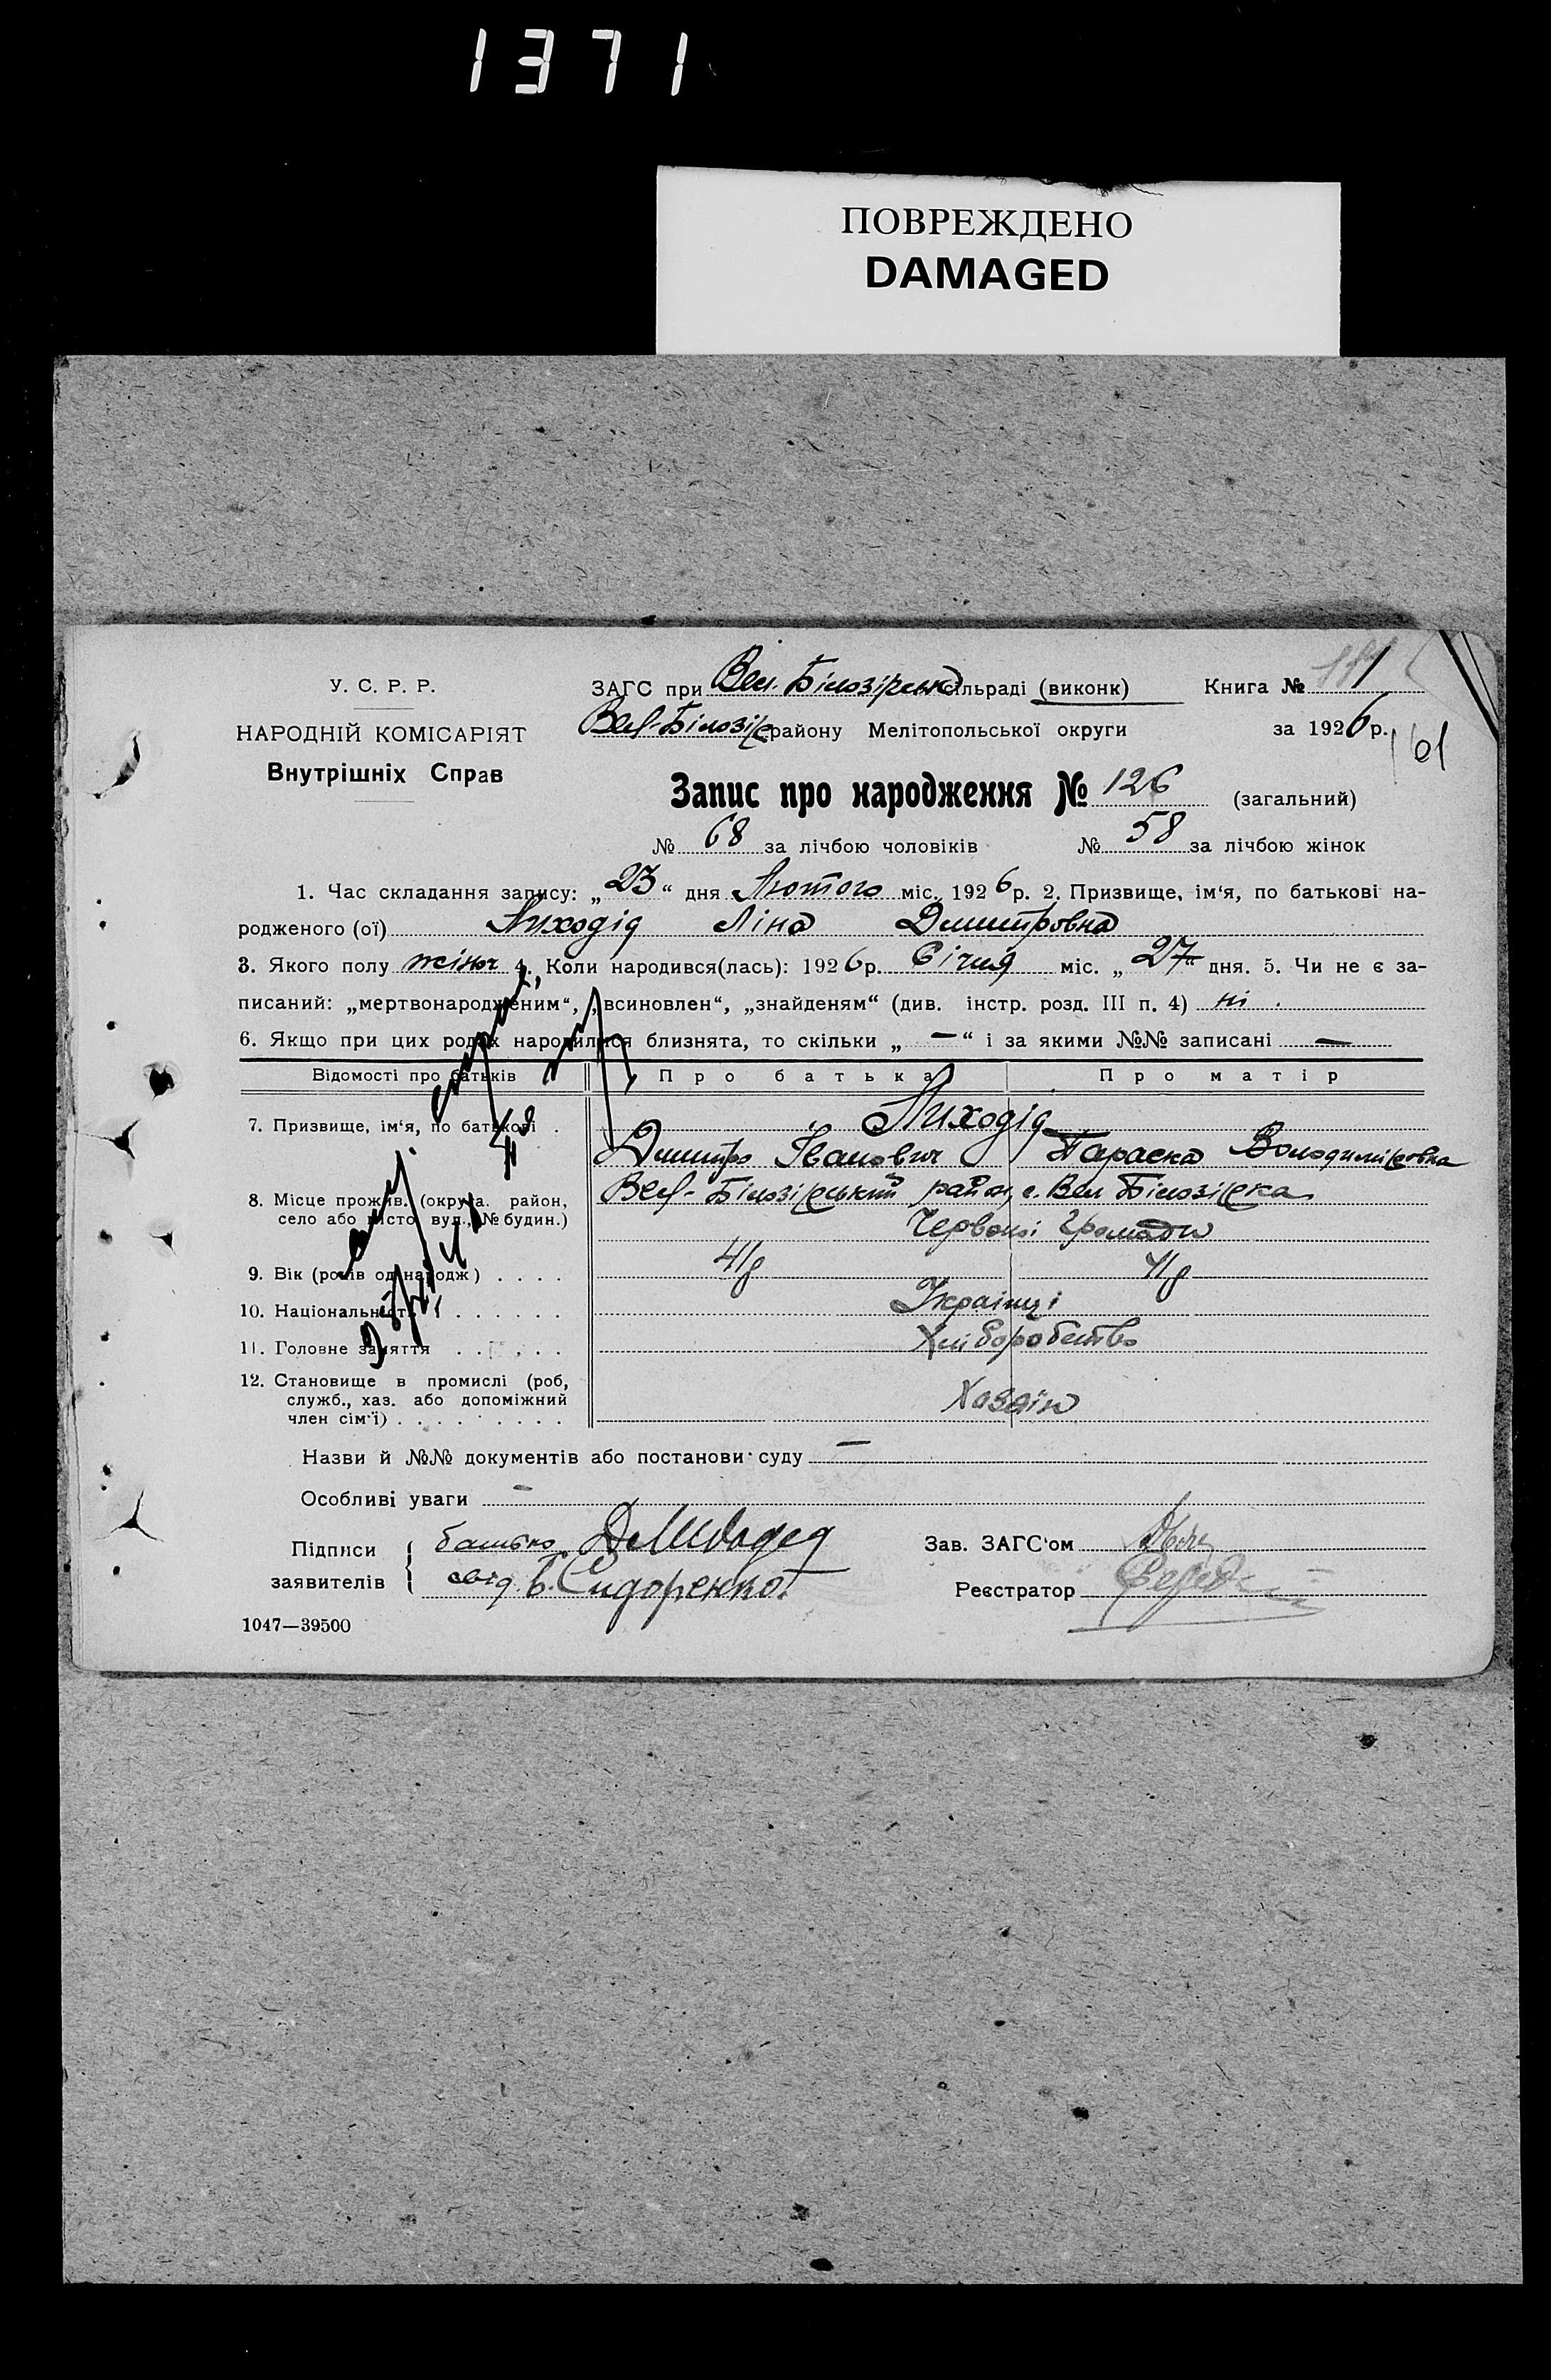 1371
ПОВРЕЖДЕНО
DAMAGED
У. С. Р. Р.
НАРОДНІЙ КОМІСАРІЯТ
Внутрішніх Справ
ЗАГС при Вел. Білозірськ сільраді (виконк) Книга № 1
Вел-Білозір району Мелітопольської округи за 1926 р.
Запис про народження № 126 (загальний)
№ 68 за лічбою чоловіків № 58 за лічбою жінок
1. Час складання запису: „23“ дня Лютого міс. 1926 р. 2. Призвище, ім‘я, по батькові на-
родженого (ої) Лиходід Ліна Дмитровна
3. Якого полу жіноч 4. Коли народився(лась): 1926 р. Січня міс. „27“ дня. 5. Чи не є за-
писаний: „мертвонародженим“, „всиновлен“, „знайденям“ (див. інстр. розд. III п. 4) ні.
6. Якщо при цих родах народилися близнята, то скільки „—“ і за якими №№ записані —
Відомості про батьків Про батька Про матір
7. Призвище, ім‘я, по батькові . Лиходід
Дмитро Іванович Параска Володимировна
8. Місце прожив. (округа. район, село або місто, вул., № будин.) Вел-Білозірський район, с. Вел Білозірка
Червоної Громади
9. Вік (років од народж) . . . . 41 р 41 р
10. Національність . . . . . . Українці
11. Головне заняття . . . . . . Хліборобство
12. Становище в промислі (роб, служб., хаз. або допоміжний член сім‘ї) . . . . . . . . . Хазяїн
Назви й №№ документів або постанови суду —
Особливі уваги —
Підписи заявителів батько Д. Лиходед
свід. В. Сидоренко.
Зав. ЗАГС‘ом
Реєстратор
1047—39500